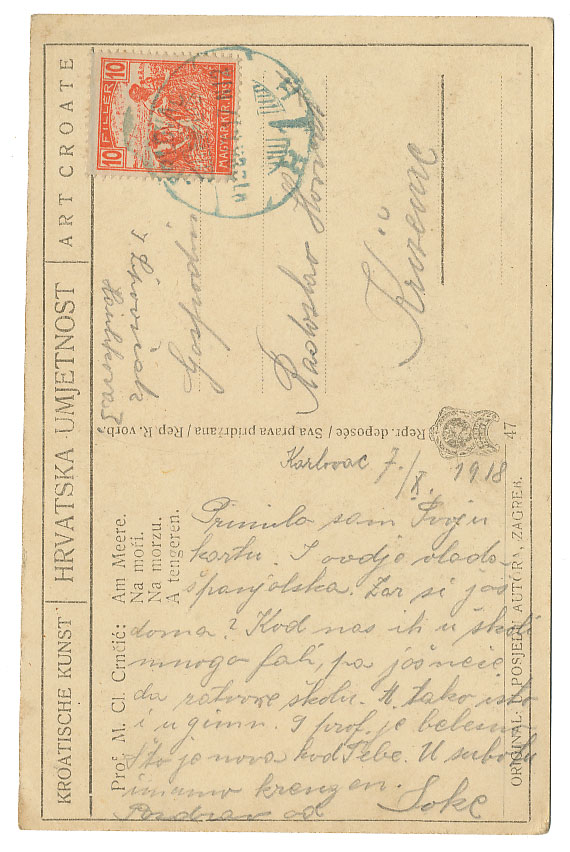 KROATISCHE KUNST | HRVATSKA UMJETNOST | ART CROATE
Prof. M. Cl. Crnčić: Am Meere.
Na moři.
Na morzu.
A tengeren.
Repr. deposée / Sva prava pridržana / Rep. R. vorb.
47
ORIGINAL POSJEDU AUTORA, ZAGREB.
10 FILLÉR 10
MAGYAR KIR. POSTA
Gospodin
Radoslav Horvat
Križevac
Karlovac 7./X. 1918
Primila sam Tvoju
kartu. I ovdje vlada
španjolska. Zar si još
doma? Kod nas ih u školi
mnogo fali, pa još neće
da zatvore školu. A tako isto
i u gimn. 9 prof. je
Što je nova kod Tebe. U subotu
imamo
Pozdrav od Soke